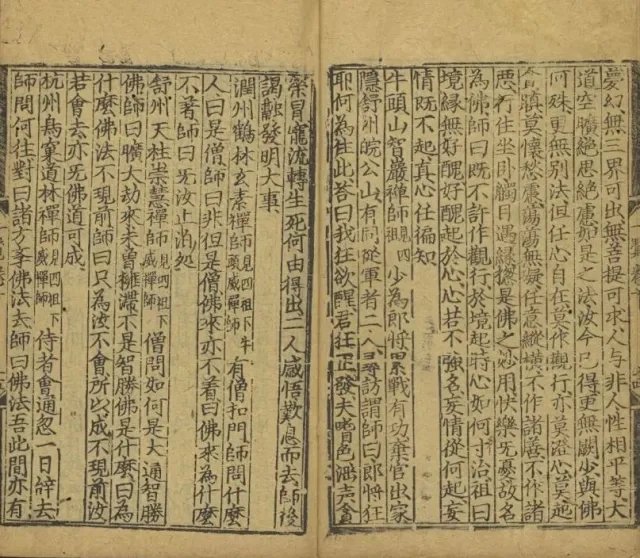 夢幻無三界可出無菩提可求人与非人性相平等大
道空曠絶思絶慮如是之法汝今已得更無闕少與佛
何殊更無別法但任心自在莫作觀行亦莫澄心莫起
貪瞋莫懷愁慮蕩蕩無疑任意縱橫不作諸善不作諸
悪行住坐卧觸目遇緣揔是佛之妙用快樂无憂故名
為佛師曰旣不許作觀行於境起時心如何対治祖曰
境緣無好醜好醜起於心心若不强名妄情從何起妄
情旣不起真心任徧知
牛頭山智巖禪師見四祖下少為郎將累戰有功棄官出家
隱舒州皖公山有同從軍者二人尋訪謂師曰郎將狂
耶何為住此荅曰我狂欲醒君狂正發夫嗜色淫声貪
榮冒寵流轉生死何由得出二人感悟歎息而去師後
謁融發明大事
潤州鶴林玄素禪師見四祖下牛頭威禪師有僧扣門師問什麽
人曰是僧師曰非但是僧佛來亦不著曰佛來為什麽
不著師曰无汝止泊処
舒州天柱崇慧禪師見四祖下威禪師僧問如何是大通智勝
佛師曰曠大劫來未曾擁滯不是智勝佛是什麽曰為
什麽佛法不現前師曰只為汝不會所以成不現前汝
若會去亦无佛道可成
杭州鳥窠道林禪師見四祖下威禪師侍者會通忽一日辞去
師問何往對曰諸方學佛法去師曰佛法吾此間亦有